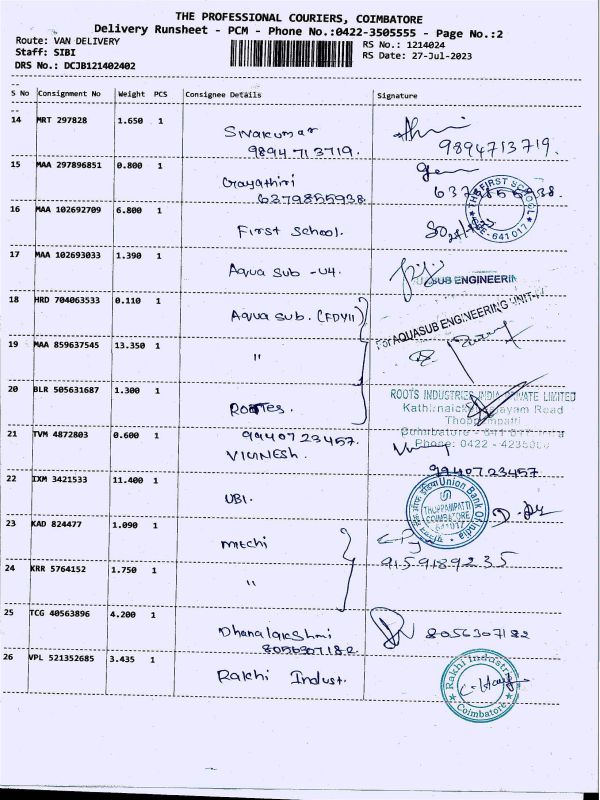 THE PROFESSIONAL COURIERS, COIMBATORE
Delivery Runsheet - PCM - Phone No.:0422-3505555 - Page No.:2
Route: VAN DELIVERY
RS No.: 1214024
Staff: SIBI
RS Date: 27-Jul-2023
DRS No.: DCJB121402402
S No Consignment No Weight PCS Consignee Details Signature
14 MRT 297828 1.650 1
Sivakumar
9894713719. 9894713719.
15 MAA 297896851 0.800 1
Gayathiri
6379855938 6379855938.
THE FIRST SCHOOL
641017
16 MAA 102692709 6.800 1
First School.
17 MAA 102693033 1.390 1
Aqua Sub -U4. AQUASUB ENGINEERIN
18 HRD 704063533 0.110 1
Aqua Sub. (FDYII)
For AQUASUB ENGINEERING UNIT-
19 MAA 859637545 13.350 1
"
20 BLR 505631687 1.300 1
ROOTES.
ROOTS INDUSTRIES INDIA PRIVATE LIMITED
Kathirnaickenpalayam Road
Thoppampatti
Coimbatore - 641 017
Phone: 0422 -
21 TVM 4872803 0.600 1
9940723457.
VIGNESH. 9940723457
22 IXM 3421533 11.400 1
UBI.
Union Bank Of India
THOPPAMPATTI
COIMBATORE
641017
23 KAD 824477 1.090 1
Mitchi
9159189235
24 KRR 5764152 1.750 1
"
25 TCG 40563896 4.200 1
Dhanalakshmi 8056307182
8056307182.
26 VPL 521352685 3.435 1
Rakhi Indust.
Rakhi Industri
Coimbatore